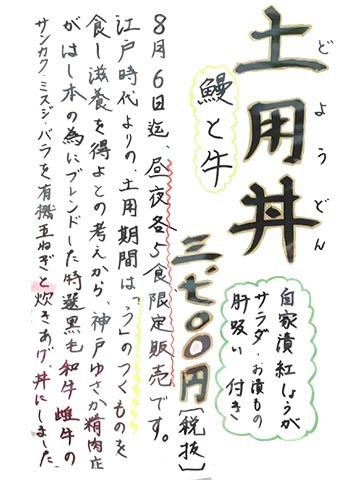 土用丼
どようどん
鰻と牛
三、七〇〇円
[税抜]
自家漬紅しょうが
サラダ・お漬もの
肝吸い 付き
8月6日迄、昼夜各5食限定販売です。
江戸時代よりの、土用期間は「う」のつくものを
食し滋養を得よとの考えから、神戸ゆさか精肉店
がはし本の為にブレンドした特選黒毛和牛雌牛の
サンカク・ミスジ・バラを有機玉ねぎと炊きあげ、丼にしました